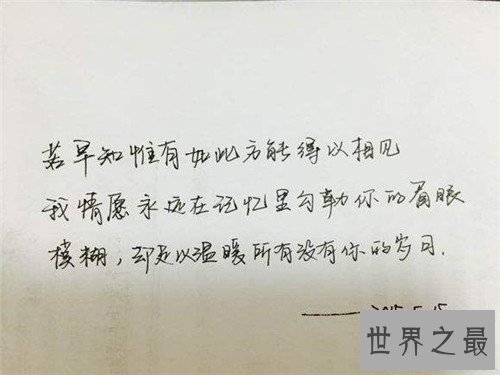 若早知惟有如此方能得以相见
我情愿永远在记忆里勾勒你的眉眼
模糊，却足以温暖所有没有你的岁月.
——2015.5.15
世界之最